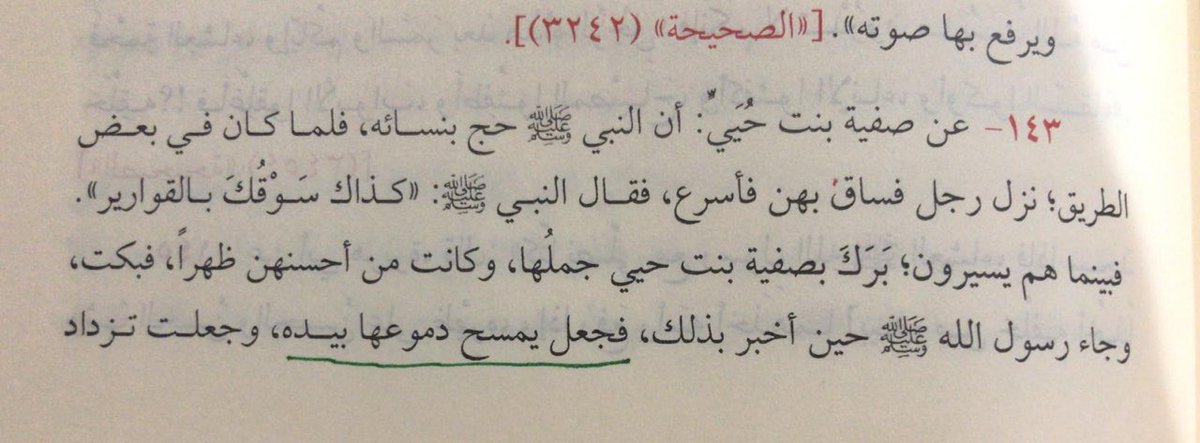 ويرفع بها صوته». [«الصحيحة» (٣٢٤٢)].
١٤٣- عن صفية بنت حُيَيٍّ: أن النبي ﷺ حج بنسائه، فلما كان في بعض
الطريق؛ نزل رجل فساق بهن فأسرع، فقال النبي ﷺ: «كذاك سَوْقُكَ بالقوارير».
فبينما هم يسيرون؛ بَرَكَ بصفية بنت حيي جملُها، وكانت من أحسنهن ظهراً، فبكت،
وجاء رسول الله ﷺ حين أخبر بذلك، فجعل يمسح دموعها بيده، وجعلت تزداد